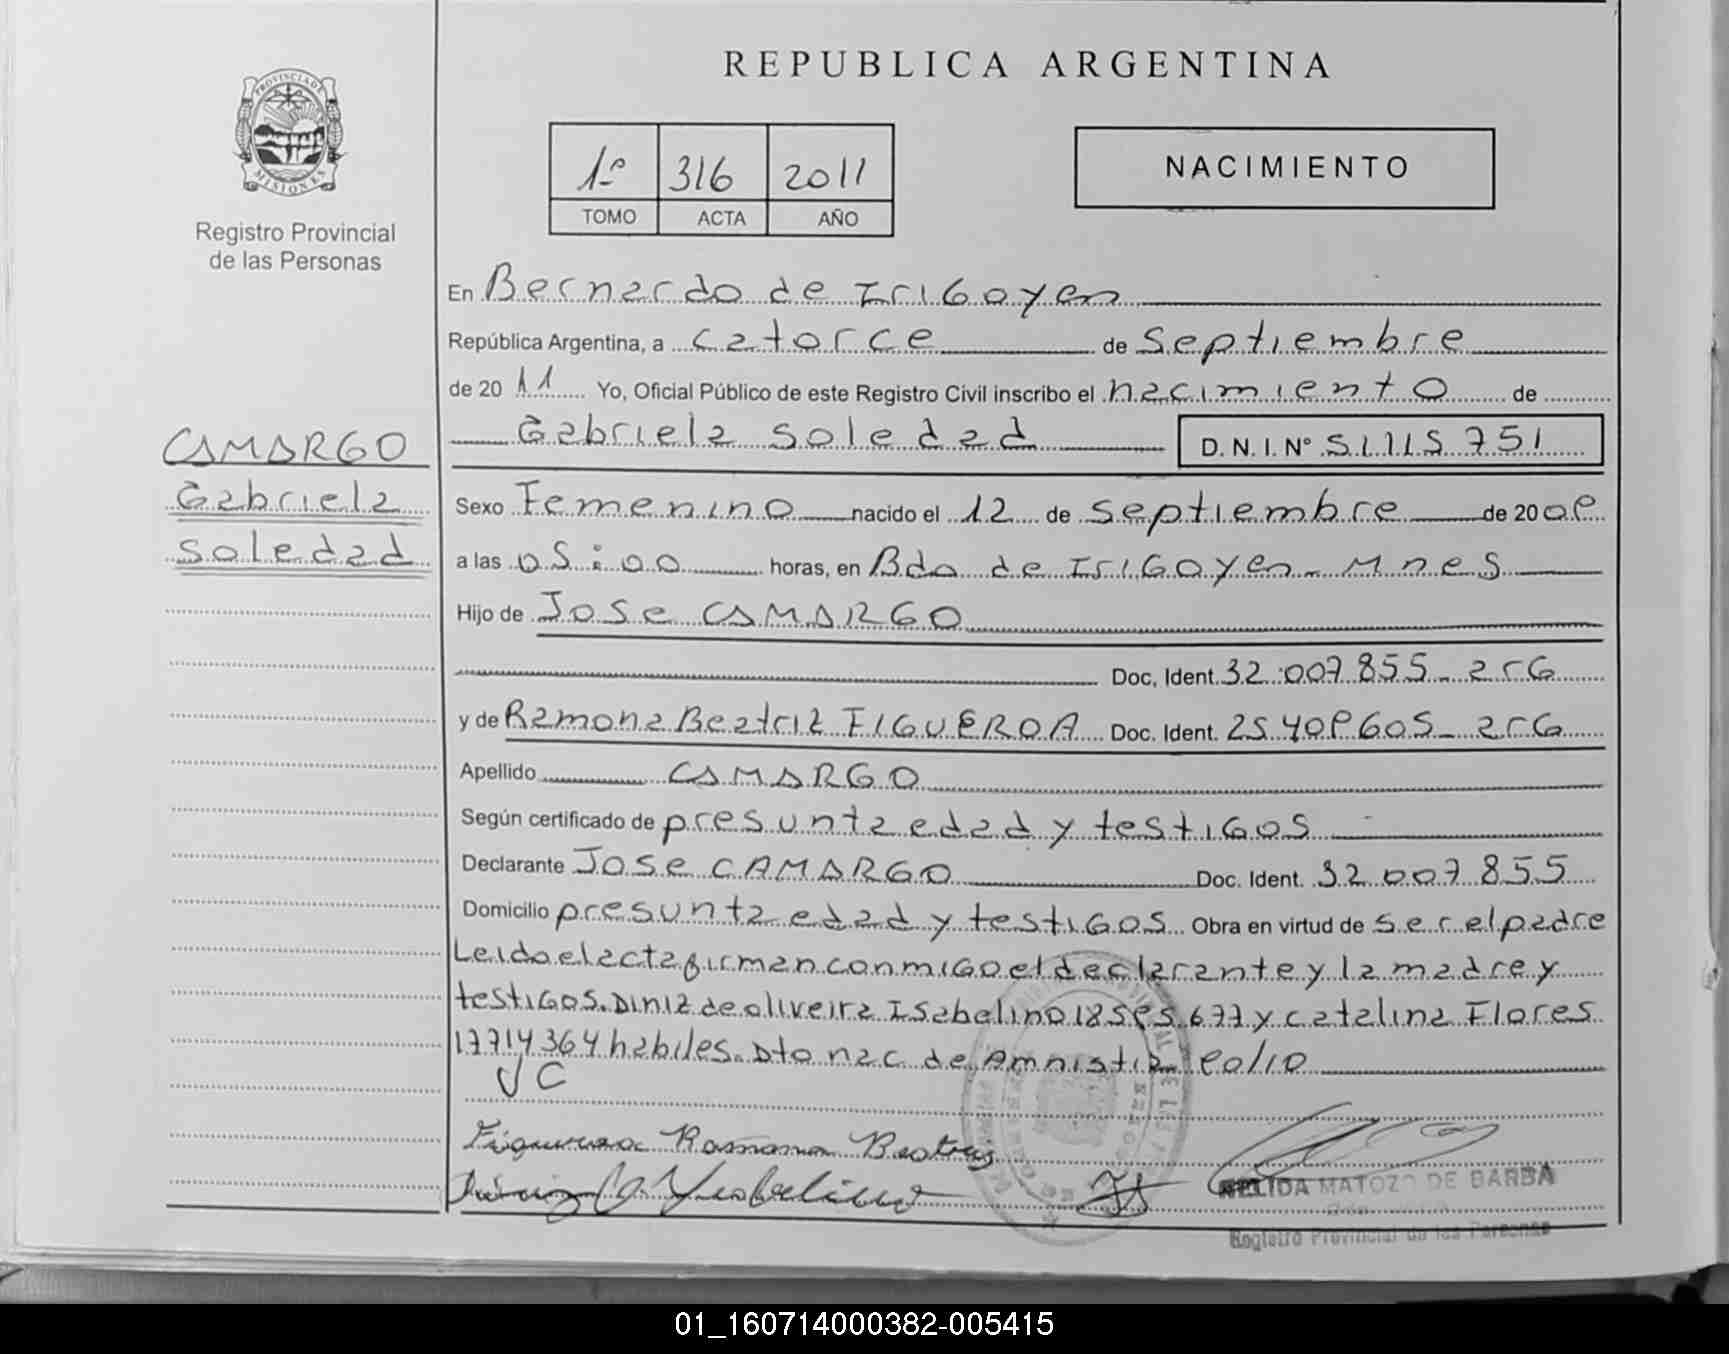 REPUBLICA ARGENTINA
PROVINCIA DE MISIONES
Registro Provincial
de las Personas
1º 316 2011
TOMO ACTA AÑO
NACIMIENTO
En Bernardo de Irigoyen
República Argentina, a catorce de septiembre
de 20 11 Yo, Oficial Público de este Registro Civil inscribo el nacimiento de
Gabriela soledad D. N. I. Nº 51.115.751
CAMARGO
Gabriela
soledad
Sexo Femenino nacido el 12 de septiembre de 20 08
a las 05:00 horas, en Bdo de Irigoyen - Mnes
Hijo de Jose CAMARGO
Doc, Ident. 32.007.855 - arG
y de Ramona Beatriz FIGUEROA Doc. Ident. 25.408.605 - arG
Apellido CAMARGO
Según certificado de presunta edad y testigos
Declarante Jose CAMARGO Doc. Ident. 32.007.855
Domicilio presunta edad y testigos Obra en virtud de ser el padre
Leido el acta firman conmigo el declarante y la madre y
testigos. Diniz de oliveira Isabelino 18.585.677 y catalina Flores
17714364 habiles. Dto nac de Amnistia
JC
Figueroa Ramona Beatriz
NELIDA MATOZO DE BARBA
Registro Provincial de las Personas
01_160714000382-005415